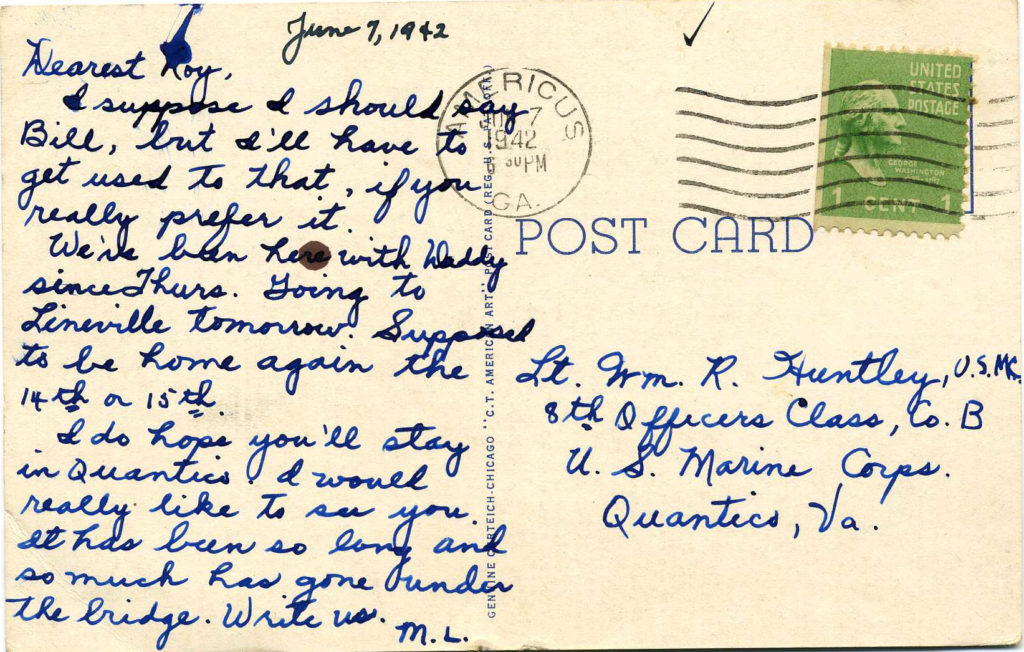 June 7, 1942
Dearest Roy,
I suppose I should say
Bill, but I'll have to
get used to that, if you
really prefer it.
We've been here with Daddy
since Thurs. Going to
Lineville tomorrow. Supposed
to be home again the
14th or 15th.
I do hope you'll stay
in Quantico. I would
really like to see you.
It has been so long and
so much has gone under
the bridge. Write us.
M.L.
GENUINE CURTEICH-CHICAGO "C.T. AMERICAN ART" POST CARD (REG. U.S. PAT. OFF.)
AMERICUS
JUN 7
1942
30 PM
GA.
UNITED
STATES
POSTAGE
GEORGE
WASHINGTON
1 CENT 1
POST CARD
Lt. Wm. R. Huntley, U.S.M.C.
8th Officers Class, Co. B
U. S. Marine Corps.
Quantico, Va.